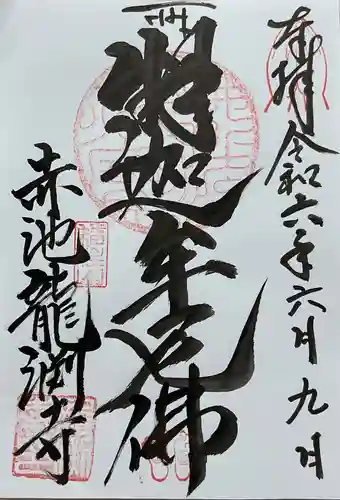 奉拝
令和六年六月九日
釈迦牟尼佛
赤池龍淵寺